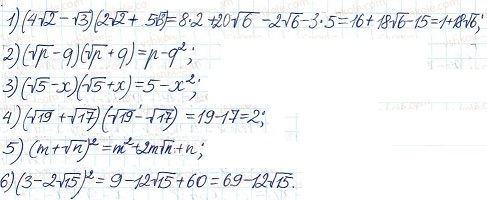 1) (4√2 - √3)(2√2 + 5√3) = 8·2 + 20√6 - 2√6 - 3·5 = 16 + 18√6 - 15 = 1 + 18√6;
2) (√p - q)(√p + q) = p - q²;
3) (√5 - x)(√5 + x) = 5 - x²;
4) (√19 + √17)(√19 - √17) = 19 - 17 = 2;
5) (m + √n)² = m² + 2m√n + n;
6) (3 - 2√15)² = 9 - 12√15 + 60 = 69 - 12√15.